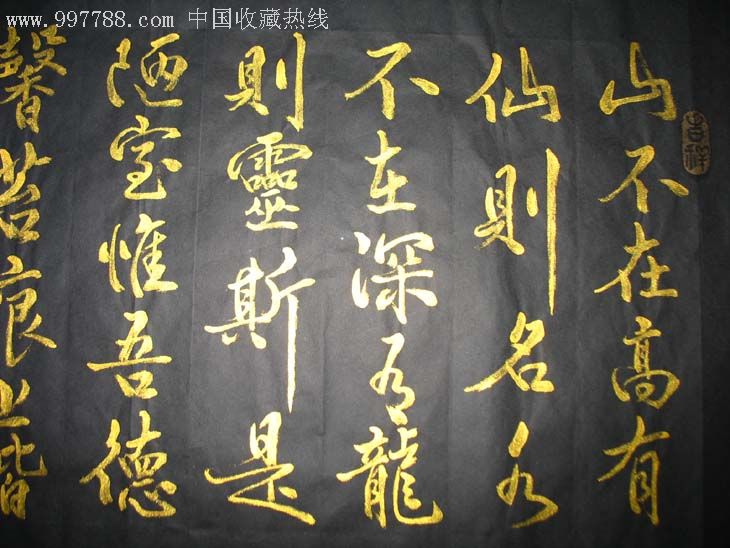 www.997788.com 中国收藏热线
山不在高有
仙則名水
不在深有龍
則靈斯是
陋室惟吾德
馨苔痕上階
吉祥